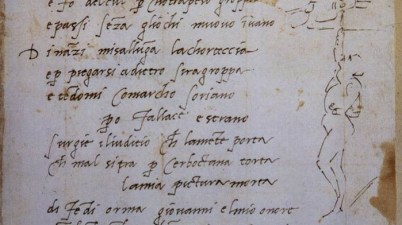 e fo del cul p chotrapeso groppa
e passi seza gliochi muovo ivano
Dinazi misalluga lachorteccia
e p piegarsi adietro siragroppa
e tedomi comarcho soriano
po fallace e strano
surgie iliuditio ch lamete porta
ch mal sitra p cerboctana torta
lamia pictura morta
di fedi orma giovanni elmio onore